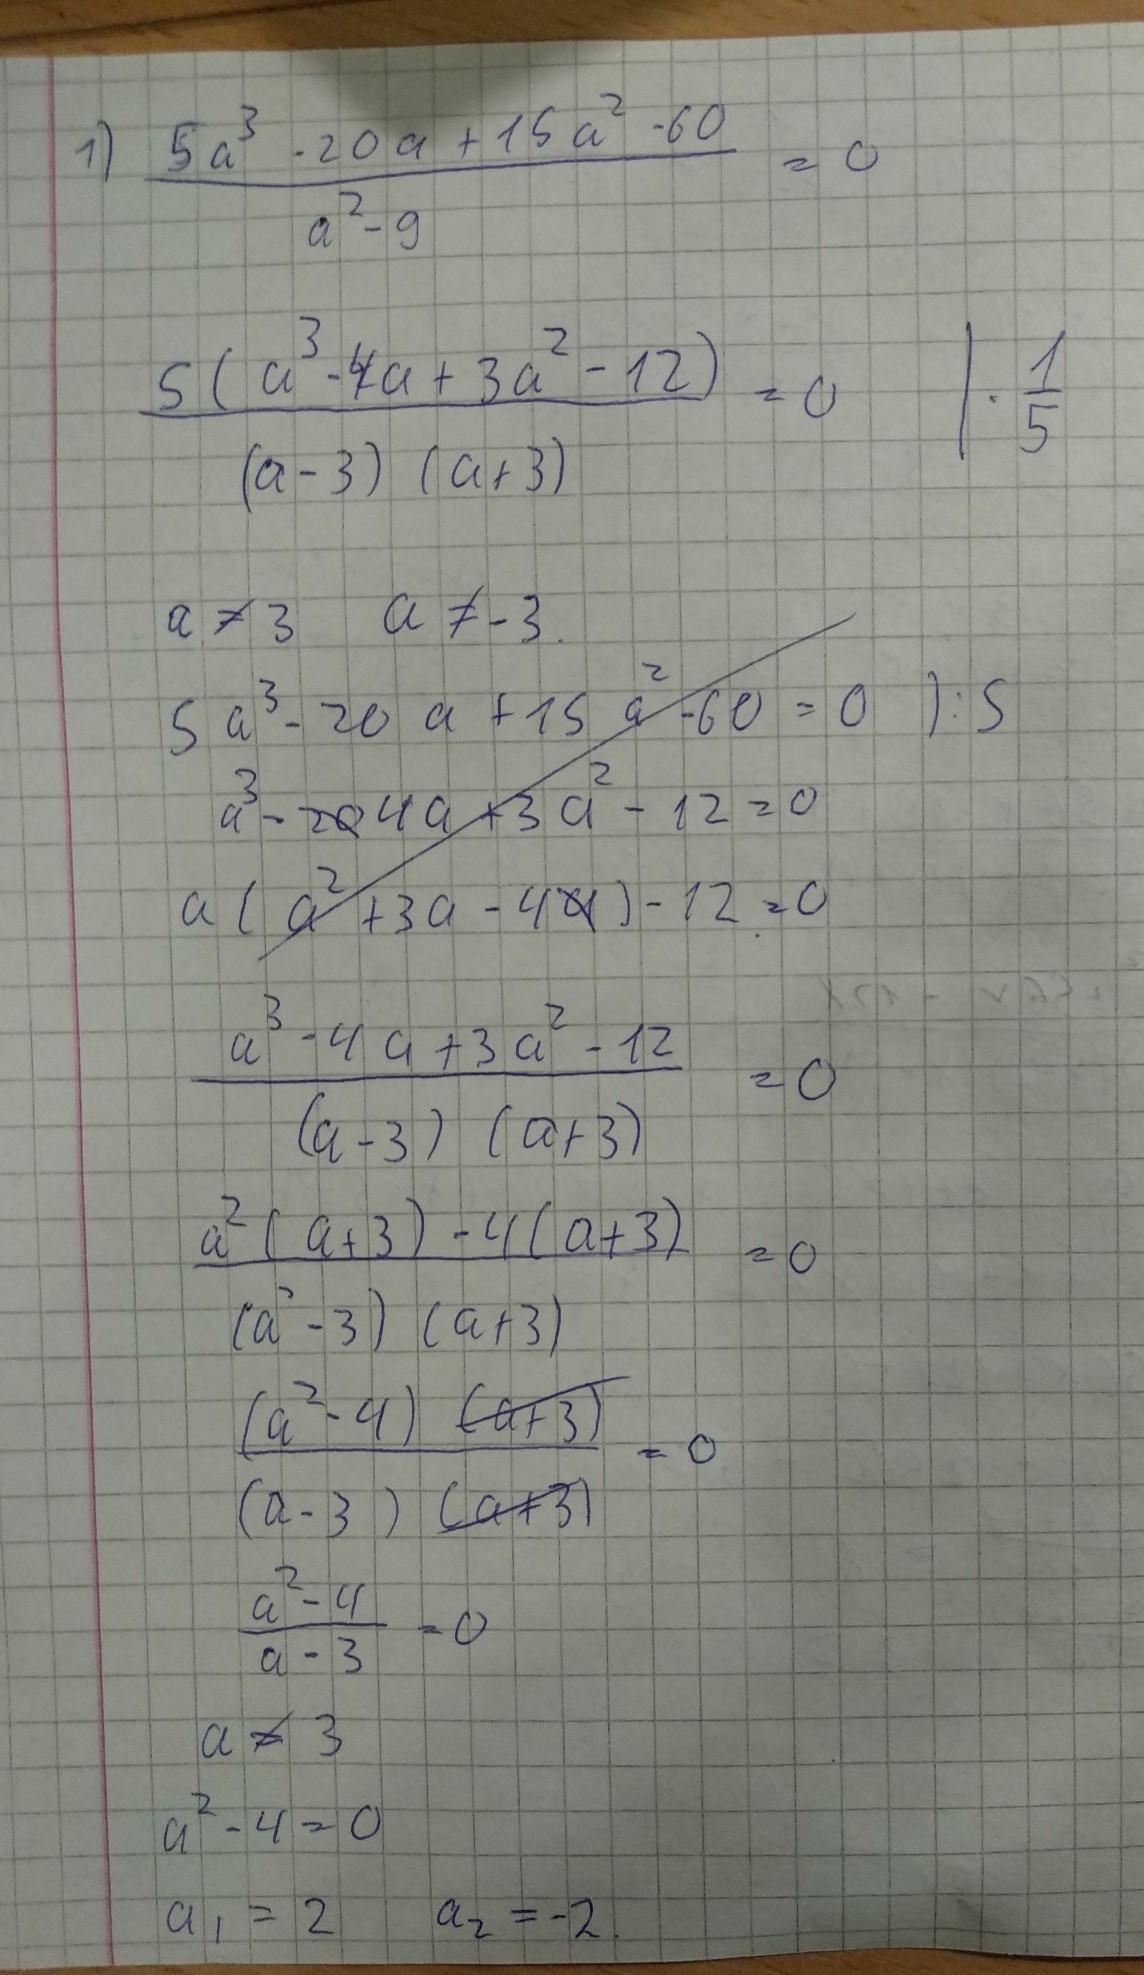 1) 5a³ - 20a + 15a² - 60 = 0
a² - 9
5(a³ - 4a + 3a² - 12) = 0 | · 1/5
(a - 3) (a + 3)
a ≠ 3 a ≠ -3.
5a³ - 20a + 15a² - 60 = 0 ) : 5
a³ - 20 4a + 3a² - 12 = 0
a(a² + 3a - 4a) - 12 = 0
a³ - 4a + 3a² - 12 = 0
(a - 3) (a + 3)
a²(a + 3) - 4(a + 3) = 0
(a² - 3) (a + 3)
(a² - 4) (a + 3) = 0
(a - 3) (a + 3)
a² - 4 = 0
a - 3
a ≠ 3
a² - 4 = 0
a₁ = 2 a₂ = -2.